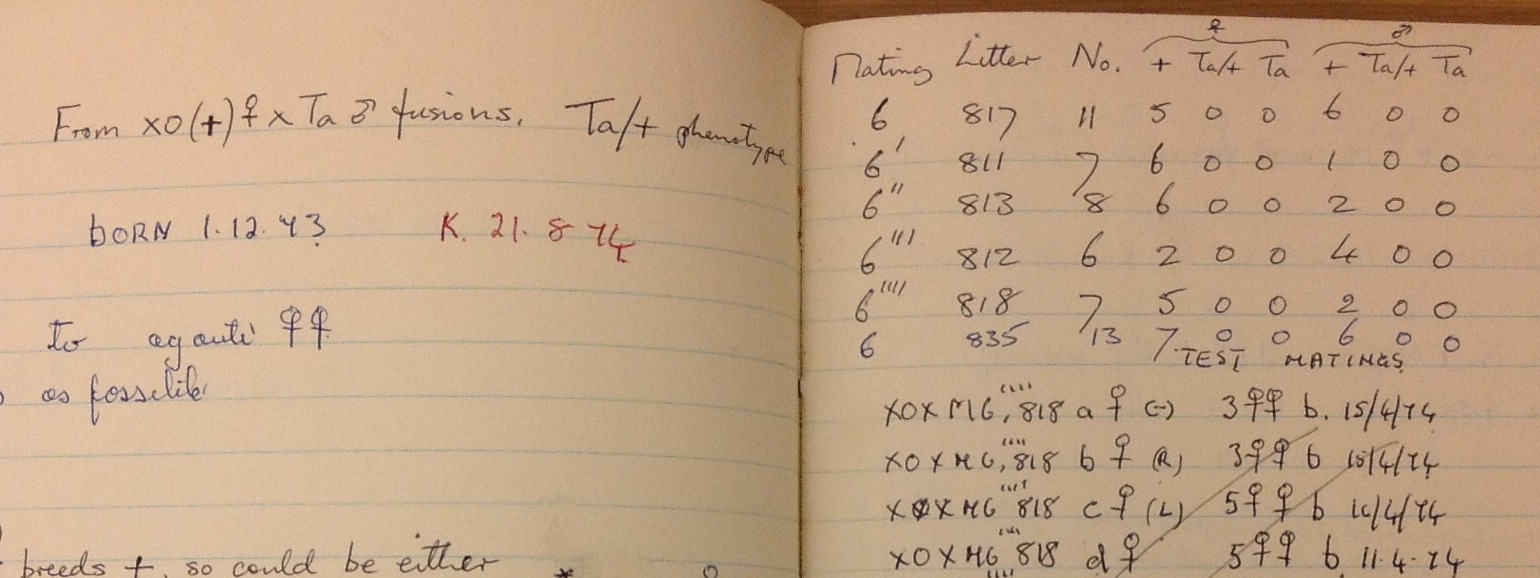 From XO(+)♀ x Ta ♂ fusions. Ta/+ phenotype
BORN 1.12.73 K. 21. 8 74
to agouti ♀♀
as possible
breeds +, so could be either
♀ ♂
Mating Litter No. + Ta/+ Ta + Ta/+ Ta
6 817 11 5 0 0 6 0 0
6' 811 7 6 0 0 1 0 0
6'' 813 8 6 0 0 2 0 0
6''' 812 6 2 0 0 4 0 0
6'''' 818 7 5 0 0 2 0 0
6 835 13 7 0 0 6 0 0
TEST MATINGS
XOXM6'''', 818 a ♀ (-) 3♀♀ b. 15/4/74
XOXM6'''', 818 b ♀ (R) 3♀♀ b 15/4/74
XOXM6'''' 818 c ♀ (L) 5♀♀ b 14/74
XOXM6'''', 818 d ♀ 5♀♀ b 11.4.74